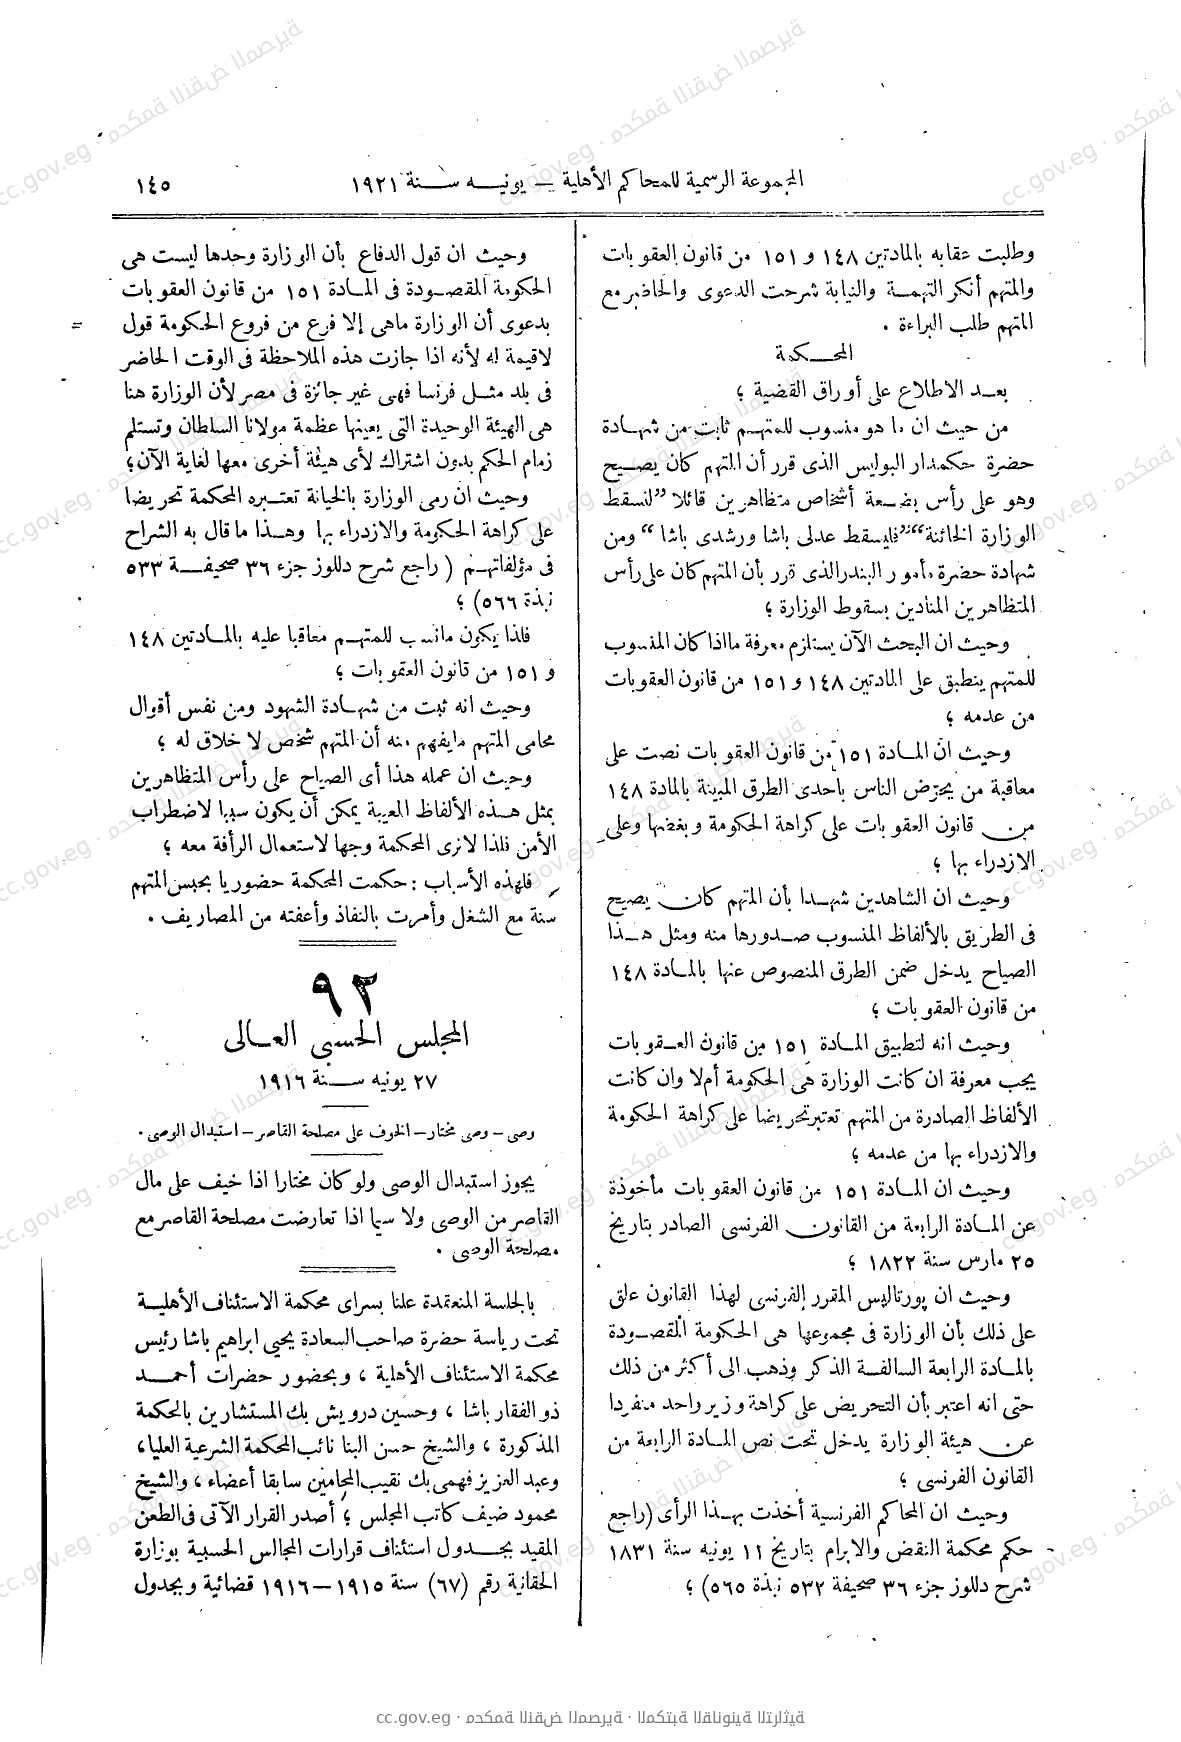 المجموعة الرسمية للمحاكم الأهلية — يونيه سنة ١٩٢١
١٤٥
وطلبت عقابه بالمادتين ١٤٨ و ١٥١ من قانون العقوبات
والمتهم أنكر التهمة والنيابة شرحت الدعوى والحاضر مع
المتهم طلب البراءة .
المحكمة
بعد الاطلاع على أوراق القضية ؛
من حيث ان ما هو منسوب للمتهم ثابت من شهادة
حضرة حكمدار البوليس الذى قرر أن المتهم كان يصيح
وهو على رأس بضعة أشخاص متظاهرين قائلا ”لتسقط
الوزارة الخائنة“ ”فليسقط عدلى باشا ورشدى باشا“ ومن
شهادة حضرة مأمور البندر الذى قرر بأن المتهم كان على رأس
المتظاهرين المنادين بسقوط الوزارة ؛
وحيث ان البحث الآن يستلزم معرفة ما اذا كان المنسوب
للمتهم ينطبق على المادتين ١٤٨ و ١٥١ من قانون العقوبات
من عدمه ؛
وحيث ان المادة ١٥١ من قانون العقوبات نصت على
معاقبة من يحرّض الناس باحدى الطرق المبينة بالمادة ١٤٨
من قانون العقوبات على كراهة الحكومة وبغضها وعلى
الازدراء بها ؛
وحيث ان الشاهدين شهدا بأن المتهم كان يصيح
فى الطريق بالألفاظ المنسوب صدورها منه ومثل هذا
الصياح يدخل ضمن الطرق المنصوص عنها بالمادة ١٤٨
من قانون العقوبات ؛
وحيث انه لتطبيق المادة ١٥١ من قانون العقوبات
يجب معرفة ان كانت الوزارة هى الحكومة أم لا وان كانت
الألفاظ الصادرة من المتهم تعتبر تحريضا على كراهة الحكومة
والازدراء بها من عدمه ؛
وحيث ان المادة ١٥١ من قانون العقوبات مأخوذة
عن المادة الرابعة من القانون الفرنسى الصادر بتاريخ
٢٥ مارس سنة ١٨٢٢ ؛
وحيث ان پورتاليس المقرر الفرنسى لهذا القانون علق
على ذلك بأن الوزارة فى مجموعها هى الحكومة المقصودة
بالمادة الرابعة السالفة الذكر وذهب الى أكثر من ذلك
حتى انه اعتبر بأن التحريض على كراهة وزير واحد منفردا
عن هيئة الوزارة يدخل تحت نص المادة الرابعة من
القانون الفرنسى ؛
وحيث ان المحاكم الفرنسية أخذت بهذا الرأى (راجع
حكم محكمة النقض والابرام بتاريخ ١١ يونيه سنة ١٨٣١
شرح دللوز جزء ٣٦ صحيفة ٥٣٢ نبذة ٥٦٥) ؛
وحيث ان قول الدفاع بأن الوزارة وحدها ليست هى
الحكومة المقصودة فى المادة ١٥١ من قانون العقوبات
بدعوى أن الوزارة ماهى إلا فرع من فروع الحكومة قول
لاقيمة له لأنه اذا جازت هذه الملاحظة فى الوقت الحاضر
فى بلد مثل فرنسا فهى غير جائزة فى مصر لأن الوزارة هنا
هى الهيئة الوحيدة التى يعينها عظمة مولانا السلطان وتستلم
زمام الحكم بدون اشتراك لأى هيئة أخرى معها لغاية الآن ؛
وحيث ان رمى الوزارة بالخيانة تعتبره المحكمة تحريضا
على كراهة الحكومة والازدراء بها وهذا ما قال به الشراح
فى مؤلفاتهم ( راجع شرح دللوز جزء ٣٦ صحيفة ٥٣٣
نبذة ٥٦٦) ؛
فلذا يكون مانسب للمتهم معاقبا عليه بالمادتين ١٤٨
و ١٥١ من قانون العقوبات ؛
وحيث انه ثبت من شهادة الشهود ومن نفس أقوال
محامى المتهم مايفهم منه أن المتهم شخص لا خلاق له ؛
وحيث ان عمله هذا أى الصياح على رأس المتظاهرين
بمثل هذه الألفاظ المعيبة يمكن أن يكون سببا لاضطراب
الأمن فلذا لاترى المحكمة وجها لاستعمال الرأفة معه ؛
فلهذه الأسباب : حكمت المحكمة حضوريا بحبس المتهم
سنة مع الشغل وأمرت بالنفاذ وأعفته من المصاريف .
٩٢
المجلس الحسبى العالى
٢٧ يونيه سنة ١٩١٦
وصى – وصى مختار – الخوف على مصلحة القاصر – استبدال الوصى .
يجوز استبدال الوصى ولو كان مختارا اذا خيف على مال
القاصر من الوصى ولا سيما اذا تعارضت مصلحة القاصر مع
مصلحة الوصى .
بالجلسة المنعقدة علنا بسراى محكمة الاستئناف الأهلية
تحت رياسة حضرة صاحب السعادة يحيى ابراهيم باشا رئيس
محكمة الاستئناف الأهلية ، وبحضور حضرات أحمد
ذو الفقار باشا ، وحسين درويش بك المستشارين بالمحكمة
المذكورة ، والشيخ حسن البنا نائب المحكمة الشرعية العليا ،
وعبد العزيز فهمى بك نقيب المحامين سابقا أعضاء ، والشيخ
محمود ضيف كاتب المجلس ؛ أصدر القرار الآتى فى الطعن
المقيد بجدول استئناف قرارات المجالس الحسبية بوزارة
الحقانية رقم (٦٧) سنة ١٩١٥ – ١٩١٦ قضائية وبجدول
cc.gov.eg · محكمة النقض المصرية · المكتبة القانونية التراثية